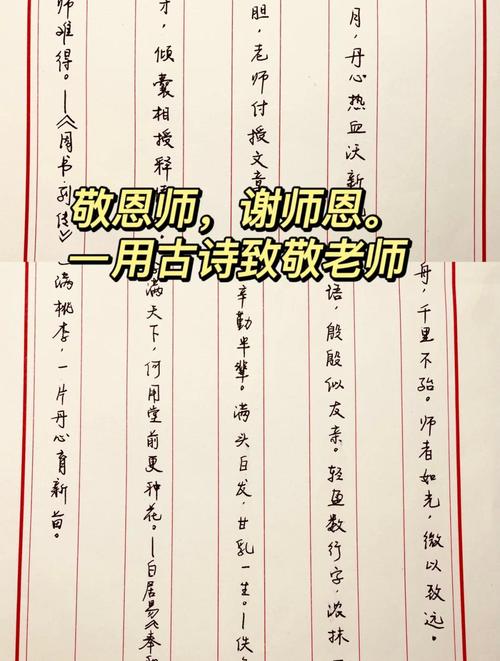 月，丹心热血沃新
胆，老师付授文章
才，倾囊相授释
师难得。—《周书列传》
敬恩师，谢师恩。
—用古诗致敬老师
丹，千里不殆。师者如光，微以致远。
语，殷殷似友亲。轻鱼数行字，浓抹一
辛勤半辈。满头白发，甘乳一生。—佚
满天下，何用堂前更种花。—白居易《奉和
满桃李，一片丹心育新苗。